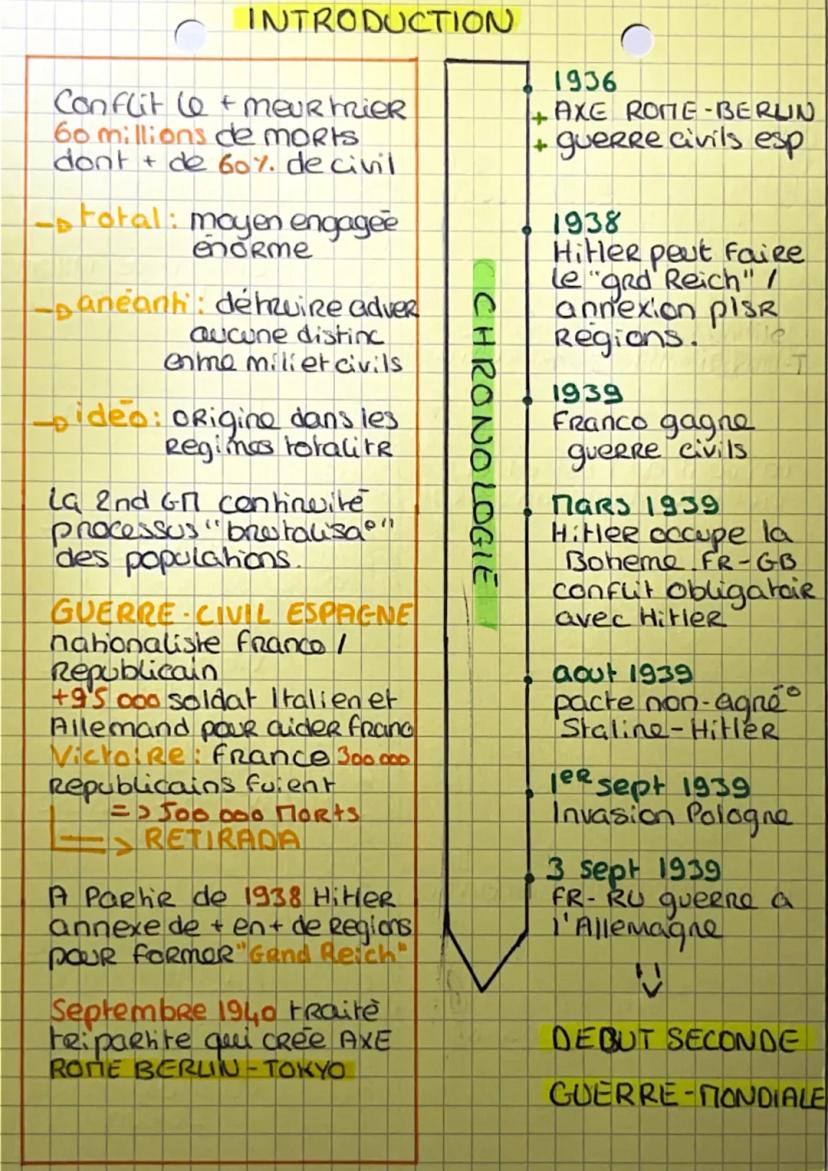 INTRODUCTION
Conflit le + meurtrier
60 millions de morts
dont + de 60% de civil
total : moyen engagée
énorme
anéanti : détruire adver
aucune distinc
entre mili et civils
idéo : origine dans les
Regimes totalitR
La 2nd GM continuité
processus "brutalisa°"
des populations.
GUERRE-CIVIL ESPAGNE
nationaliste Franco /
Republicain
+95 000 soldat Italien et
Allemand pour aider Franc
Victoire : France 300 000
Republicains fuient
=> 500 000 MORTS
RETIRADA
A Partir de 1938 Hitler
annexe de + en + de Regions
pour former "Grand Reich"
Septembre 1940 traité
tripartite qui crée AXE
ROME BERLIN-TOKYO
CHRONOLOGIE
1936
+ AXE ROME-BERLIN
+ guerre civils esp
1938
Hitler peut faire
le "grd Reich" /
annexion plsR
Régions.
1939
Franco gagne
guerre civils
MARS 1939
Hitler occupe la
Boheme. FR-GB
conflit obligatoir
avec Hitler
aout 1939
pacte non-agré°
Staline-Hitler
1er sept 1939
Invasion Pologne
3 sept 1939
FR-RU guerre a
l'Allemagne
DEBUT SECONDE
GUERRE-MONDIALE